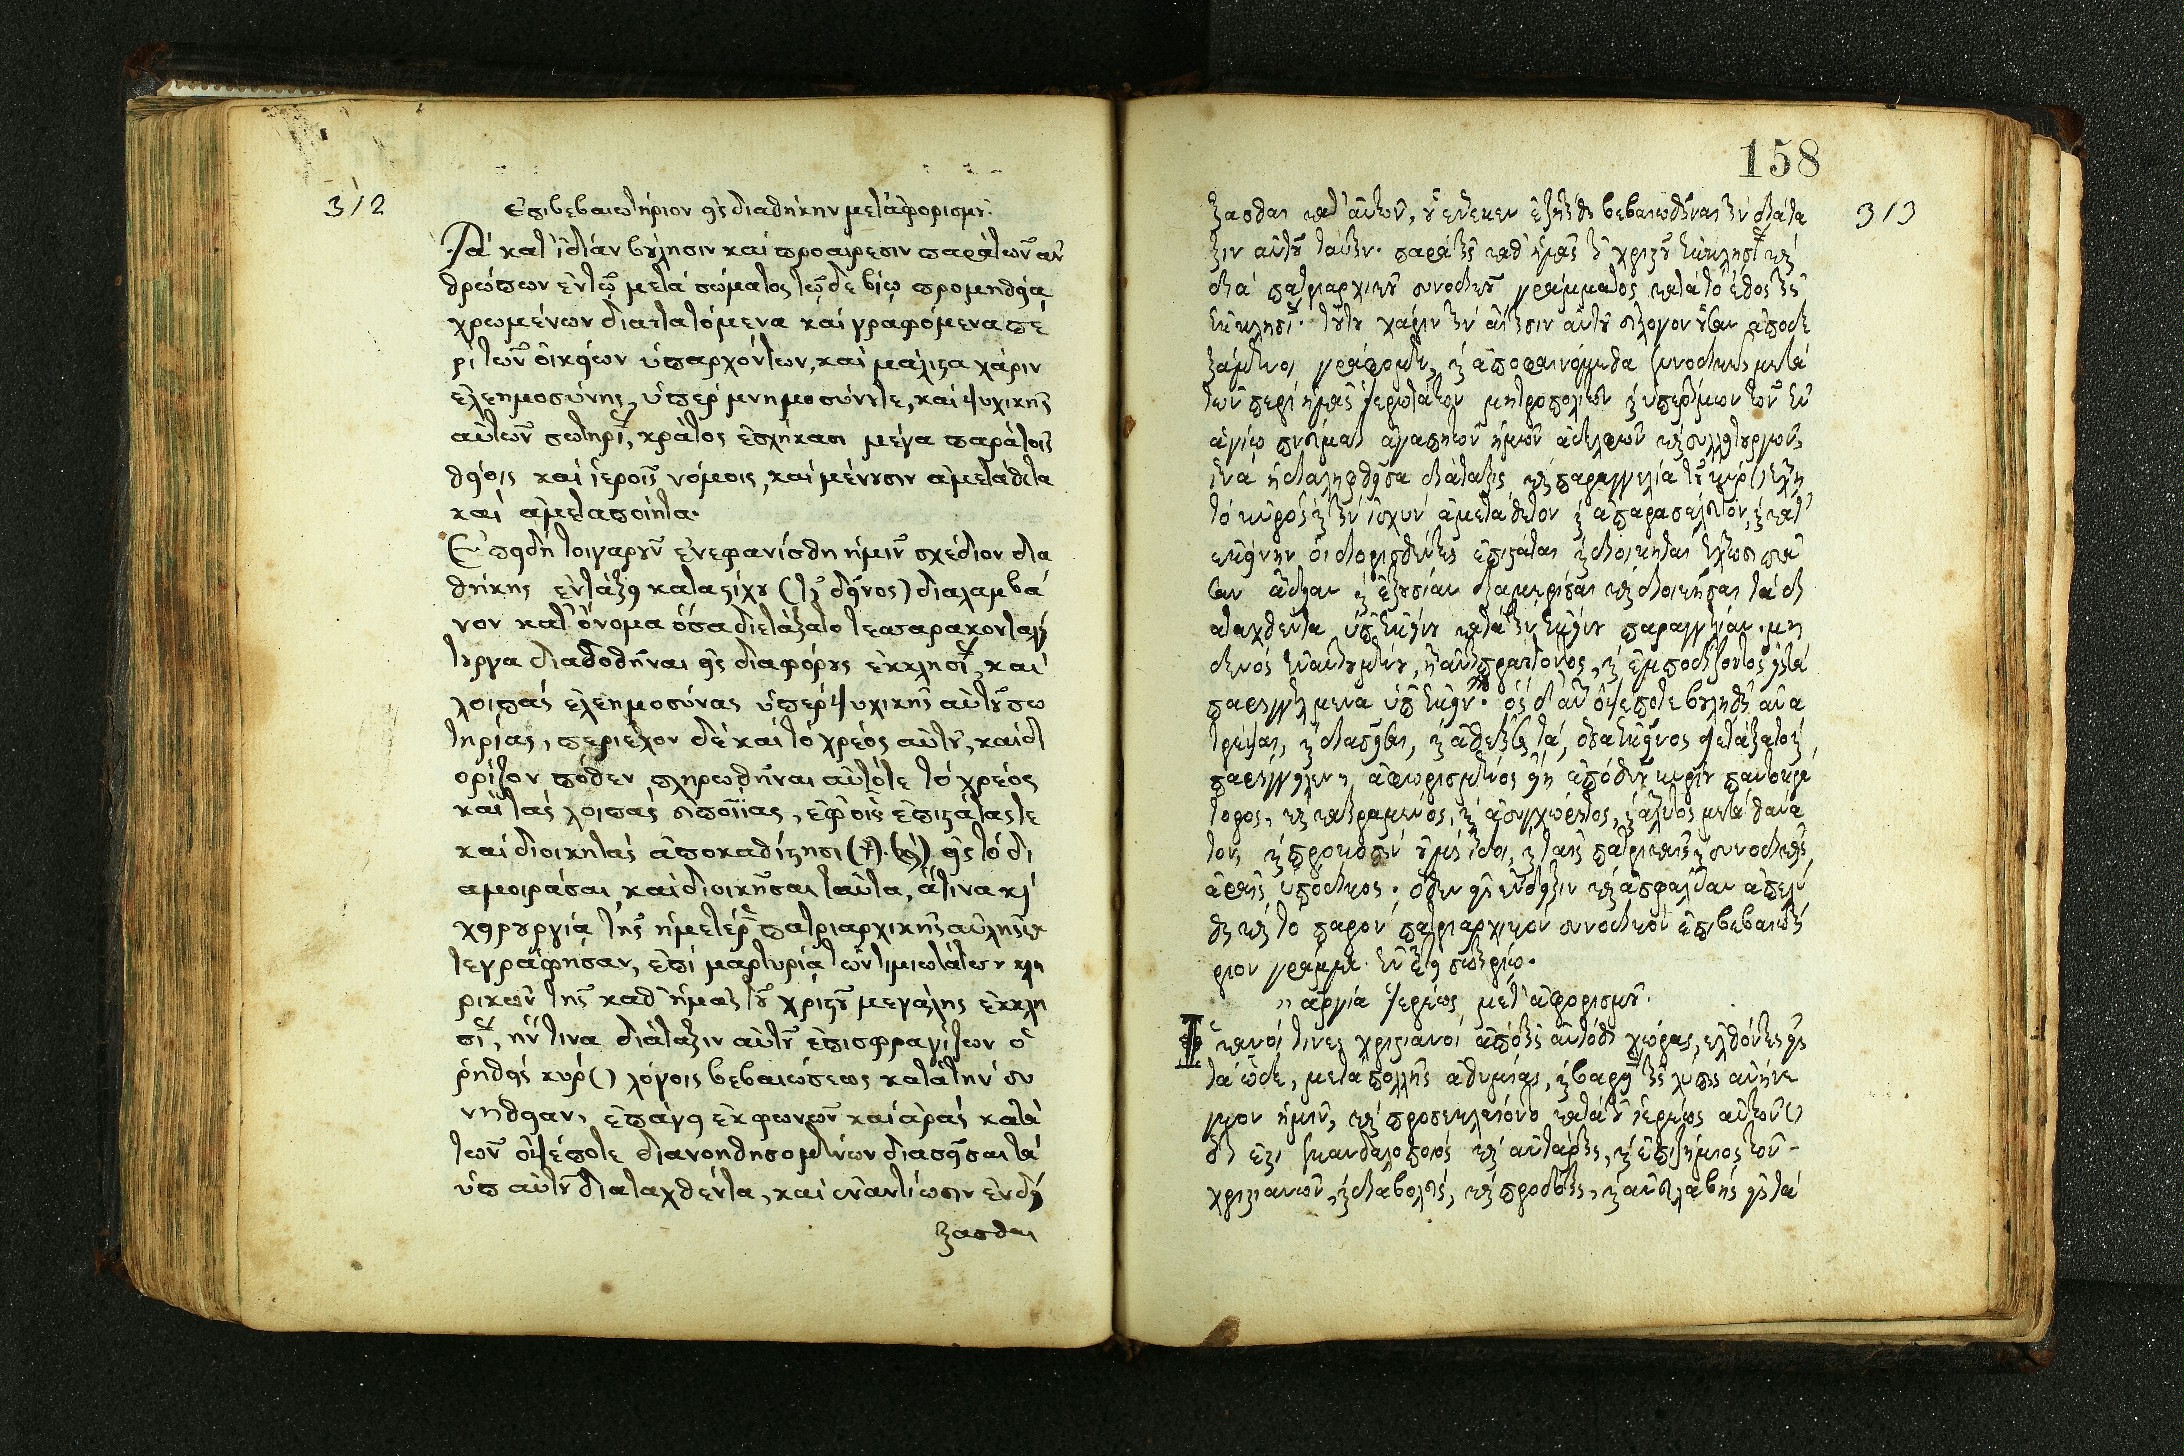 312
Ἐπιβεβαιωτήριον εἰς διαθήκην μετ' ἀφορισμοῦ.
Τὰ κατ' ἰδίαν βούλησιν καὶ προαίρεσιν παρὰ τῶν ἀν
θρώπων ἐν τῷ μετὰ σώματος τῷδε βίῳ προμηθείᾳ
χρωμένων διαταττόμενα καὶ γραφόμενα πε
ρὶ τῶν οἰκείων ὑπαρχόντων, καὶ μάλιστα χάριν
ἐλεημοσύνης, ὑπὲρ μνημοσύνου τε, καὶ ψυχικῆς
αὐτῶν σωτηρίας, κράτος ἐσχήκασι μέγα παρὰ τοῖς
θείοις καὶ ἱεροῖς νόμοις, καὶ μένουσιν ἀμετάθετα
καὶ ἀμεταποίητα.
Ἐπειδὴ τοιγαροῦν ἐνεφανίσθη ἡμῖν σχέδιον δια
θήκης ἐν τάξει καταστίχου (τοῦ δεῖνος) διαλαμβά
νον κατ' ὄνομα ὅσα διετάξατο τεσσαρακονταλεί
τουργα διαδοθῆναι εἰς διαφόρους ἐκκλησίας, καὶ
λοιπὰς ἐλεημοσύνας ὑπὲρ ψυχικῆς αὐτοῦ σω
τηρίας, περιέχον δὲ καὶ τὸ χρέος αὐτοῦ, καὶ δι
ορίζον πόθεν πληρωθῆναι αὐτό τε τὸ χρέος
καὶ τὰς λοιπὰς, ἐφ' οἷς ἐπιστάτας τε
καὶ διοικητὰς ἀποκαθίστησι εἰς τὸ δι
αμοιράσαι, καὶ διοικῆσαι ταῦτα, ἅτινα καὶ
χειρουργίᾳ τῆς ἡμετέρας πατριαρχικῆς αὐλῆς κα
τεγράφησαν, ἐπὶ μαρτυρίᾳ τῶν τιμιωτάτων κλη
ρικῶν τῆς καθ' ἡμᾶς τοῦ Χριστοῦ μεγάλης ἐκκλη
σίας, ἥντινα διάταξιν αὐτοῦ ἐπισφραγίζων ὁ
ῥηθεὶς κὺρ () λόγοις βεβαιώσεως κατὰ τὴν συ
νήθειαν, ἐπάγει ἐκφωνῶν καὶ ἀρὰς κατὰ
τῶν ὀψέποτε διανοηθησομένων διασεῖσαι τὰ
ὑπ' αὐτοῦ διαταχθέντα, καὶ ἐναντίωσιν ἐνδεί
ξασθαι
158
313
ξασθαι κατ' αὐτῶν, οὗ ἕνεκεν ἐζήτησε βεβαιωθῆναι τὴν διάτα
ξιν αὐτοῦ ταύτην παρὰ τῆς καθ' ἡμᾶς τοῦ Χριστοῦ ἐκκλησίας καὶ
διὰ πατριαρχικοῦ συνοδικοῦ γράμματος κατὰ τὸ ἔθος τῆς
ἐκκλησίας. τούτου χάριν τὴν αἴτησιν αὐτοῦ εὔλογον οὖσαν ἀποδε
ξάμενοι γράφομεν, καὶ ἀποφαινόμεθα συνοδικῶς μετὰ
τῶν περὶ ἡμᾶς ἱερωτάτων μητροπολιτῶν καὶ ὑπερτίμων τῶν ἐν
ἁγίῳ πνεύματι ἀγαπητῶν ἡμῶν ἀδελφῶν καὶ συλλειτουργῶν,
ἵνα ἡ διαληφθεῖσα διάταξις καὶ παραγγελία τοῦ κὺρ () ἔχῃ
τὸ κῦρος καὶ τὴν ἰσχὺν ἀμετάθετον καὶ ἀπαρασάλευτον, καὶ κατ'
ἐκείνην οἱ διορισθέντες ἐπιστάται καὶ διοικηταὶ ἔχωσι πᾶ
σαν ἄδειαν καὶ ἐξουσίαν διαμερίσαι καὶ διοικῆσαι τὰ δι
αταχθέντα ὑπ' ἐκείνου κατὰ τὴν ἐκείνου παραγγελίαν, μη
δενὸς ἐναντιουμένου, ἢ ἀντιπράττοντος, καὶ ἐμποδίζοντος εἰς τὰ
παρηγγελμένα ὑπ' ἐκείνου. ὃς δ' ἂν ὀψέποτε βουληθῇ ἀνα
τρέψαι, καὶ διασεῖσαι, καὶ ἀθετῆσαι τὰ ὅσα ἐκεῖνος διετάξατο καὶ
παρήγγειλεν ἀφωρισμένος εἴη ἀπὸ Θεοῦ κυρίου παντοκρά
τορος, καὶ κατηραμένος, καὶ ἀσυγχώρητος, καὶ ἄλυτος μετὰ θάνα
τον, καὶ προκοπὴν οὐ μὴ ἴδοι, καὶ ταῖς πατρικαῖς καὶ συνοδικαῖς
ἀραῖς ὑπόδικος. ὅθεν εἰς ἔνδειξιν καὶ ἀσφάλειαν ἀπελύ
θη καὶ τὸ παρὸν πατριαρχικὸν συνοδικὸν ἐπιβεβαιωτή
ριον γράμμα. ἐν ἔτει σωτηρίῳ.
ἀργία ἱερέως μετ' ἀφορισμοῦ.
Ἱκανοί τινες χριστιανοὶ ἀπὸ τῆς αὐτόθι χώρας, ἐλθόντες εἰς
τὰ ὧδε, μετὰ πολλῆς ἀθυμίας, καὶ βαρυτάτης λύπης ἀνήνε
γκον ἡμῖν, καὶ προσεκλαίοντο κατὰ τοῦ ἱερέως αὐτῶν ()
ὅτι ἐστὶ σκανδαλοποιὸς καὶ αὐτάρκης, καὶ ἐπιζήμιος τῶν
χριστιανῶν, καὶ διαβολεὺς, καὶ προδότης, καὶ ἀνευλαβὴς εἰς τὰ